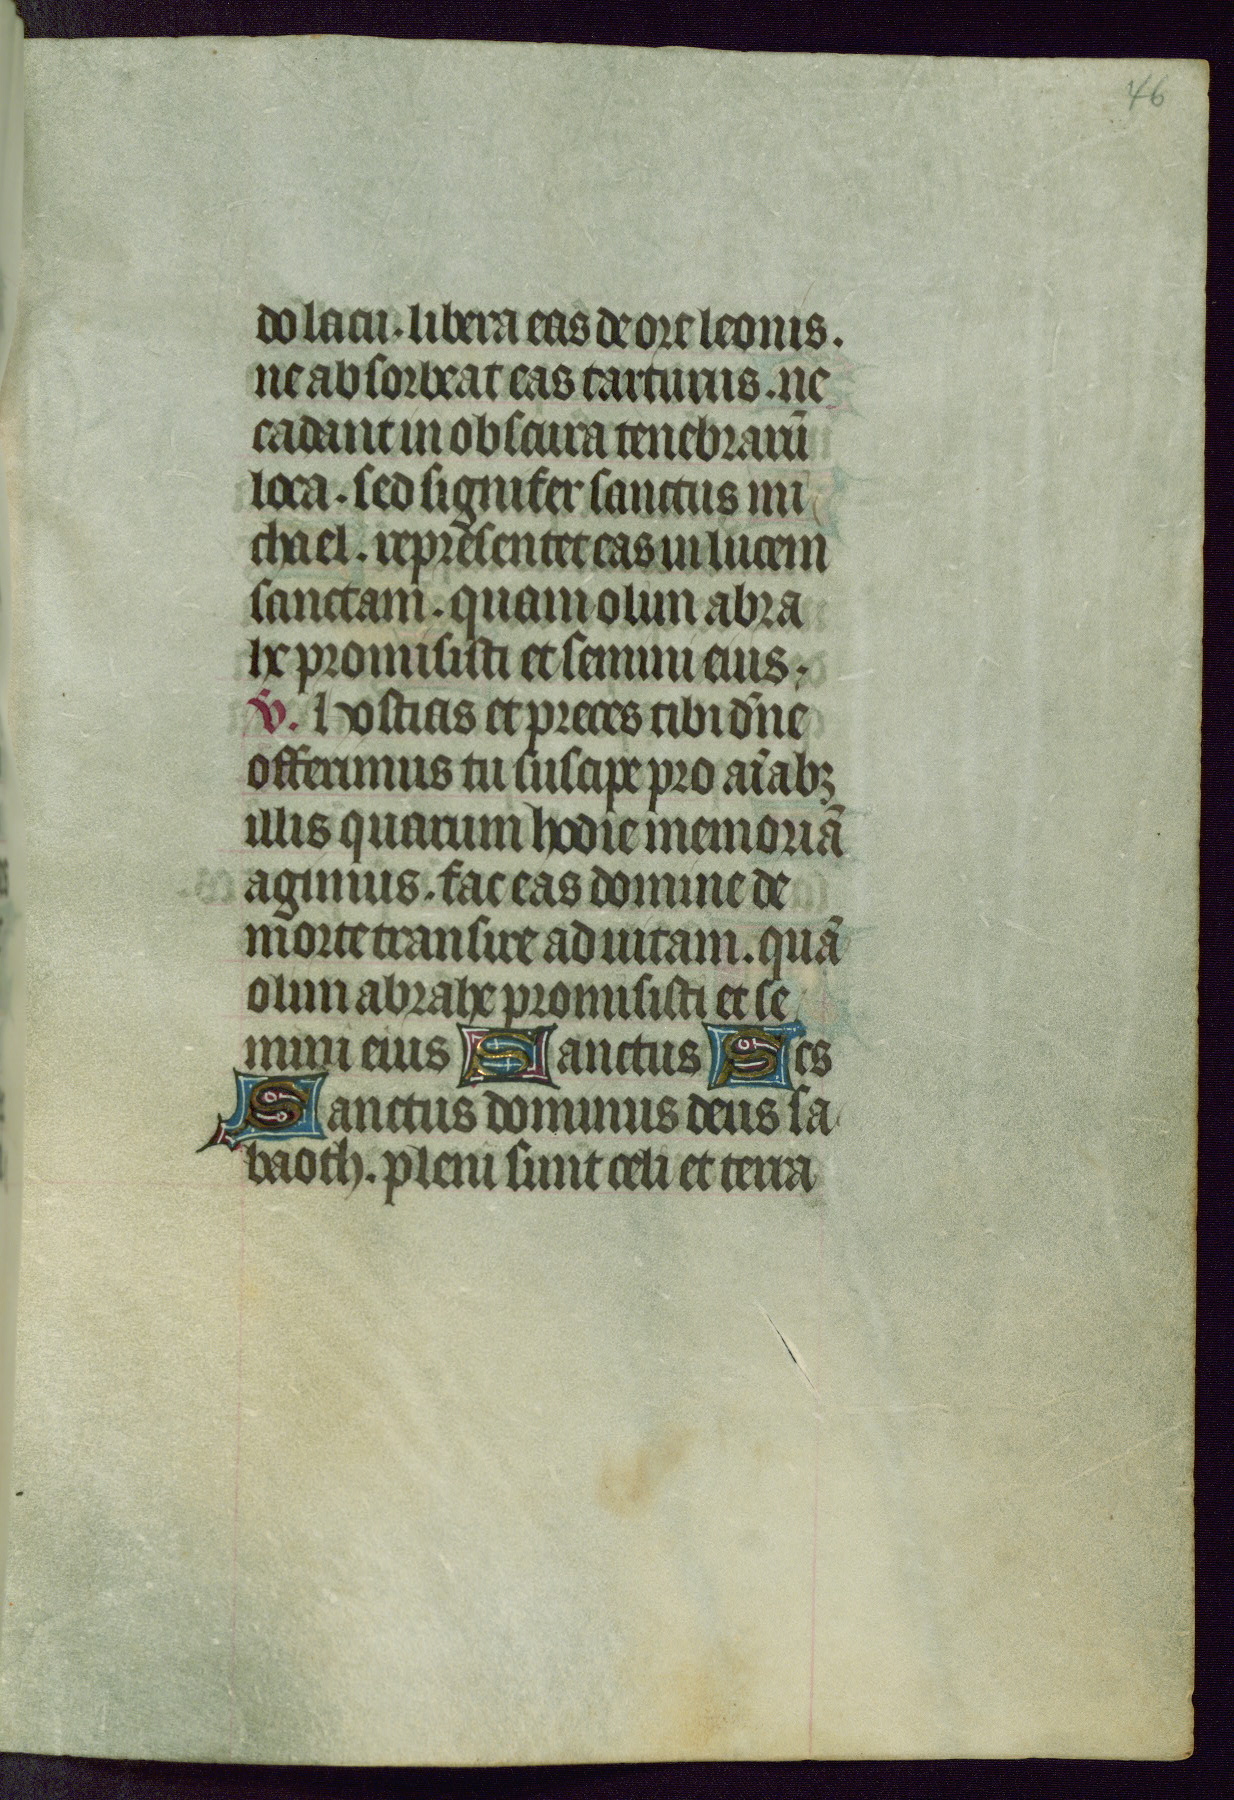 46
do lacu. libera eas de ore leonis.
ne absorbeat eas tarturus. ne
cadant in obscura tenebrarū
loca. sed signifer sanctus mi
chael. repr̄esentet eas in lucem
sanctam. quam olim abra
he promisisti et semini eius.
v̄. hosticis et preces tibi dn̄e
offerimus tu suscipe pro aīabꝫ
illis quarum hodie memoriā
agimus. fac eas domine de
morte transire ad uitam. quā
olim abrahe promisisti et se
mini eius Sanctus Scs
Sanctus dominus deus sa
baoth. pleni sunt celi et terra